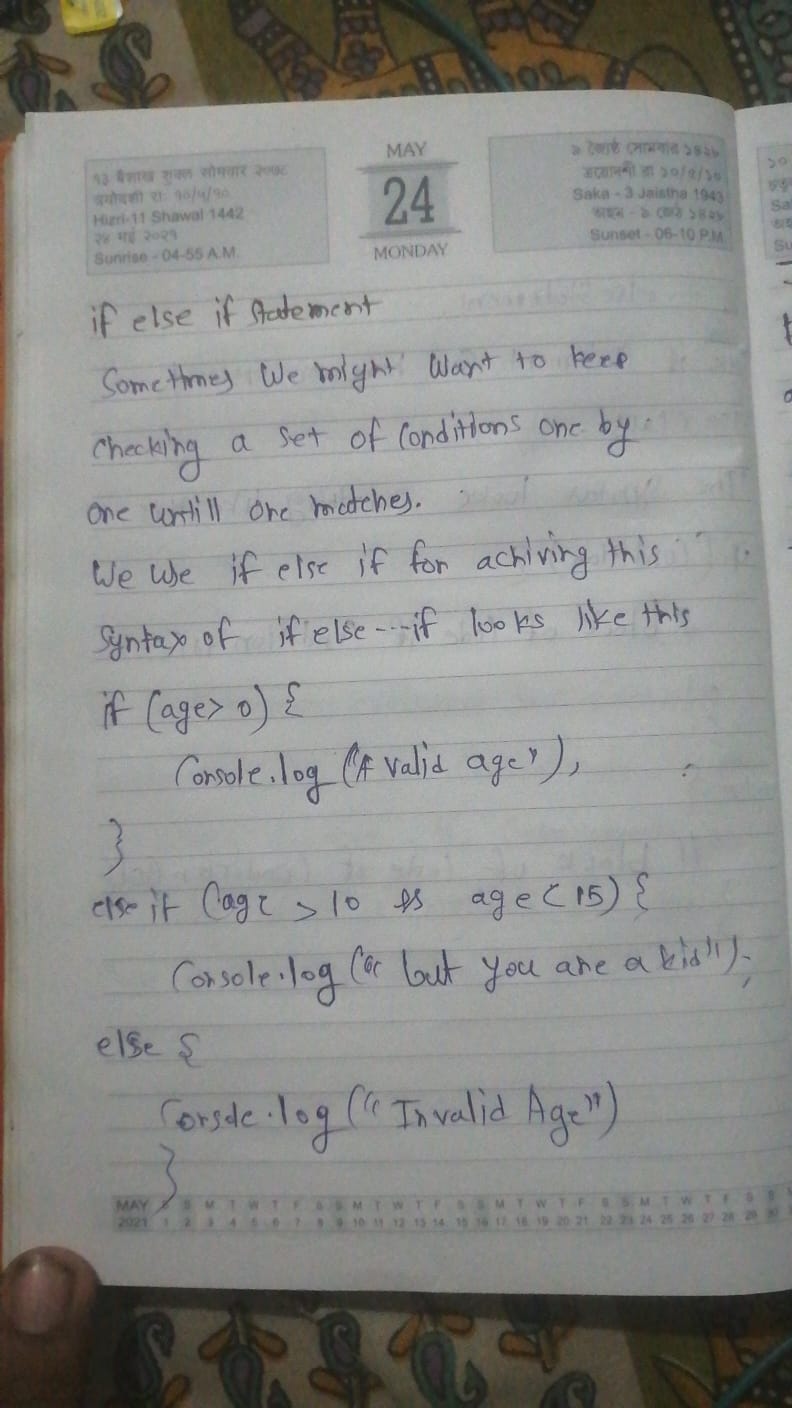 MAY
24
MONDAY
Hizri-11 Shawal 1442
२४ मई २०२१
Sunrise - 04-55 A.M.
Saka - 3 Jaistha 1943
Sunset - 06-10 P.M.
if else if Statement
Sometimes We might Want to keep
checking a set of Conditions one by
one untill one matches.
We Use if else if for achiving this
Syntax of if else---if looks like this
if (age > 0) {
Console.log ("A valid age"),
}
else if (age > 10 && age < 15) {
Console.log ("but you are a kid");
else {
Console.log ("Invalid Age")
}
MAY S S M T W T F S S M T W T F S S M T W T F S S M T W T F S S
2021 1 2 3 4 5 6 7 8 9 10 11 12 13 14 15 16 17 18 19 20 21 22 23 24 25 26 27 28 29 30